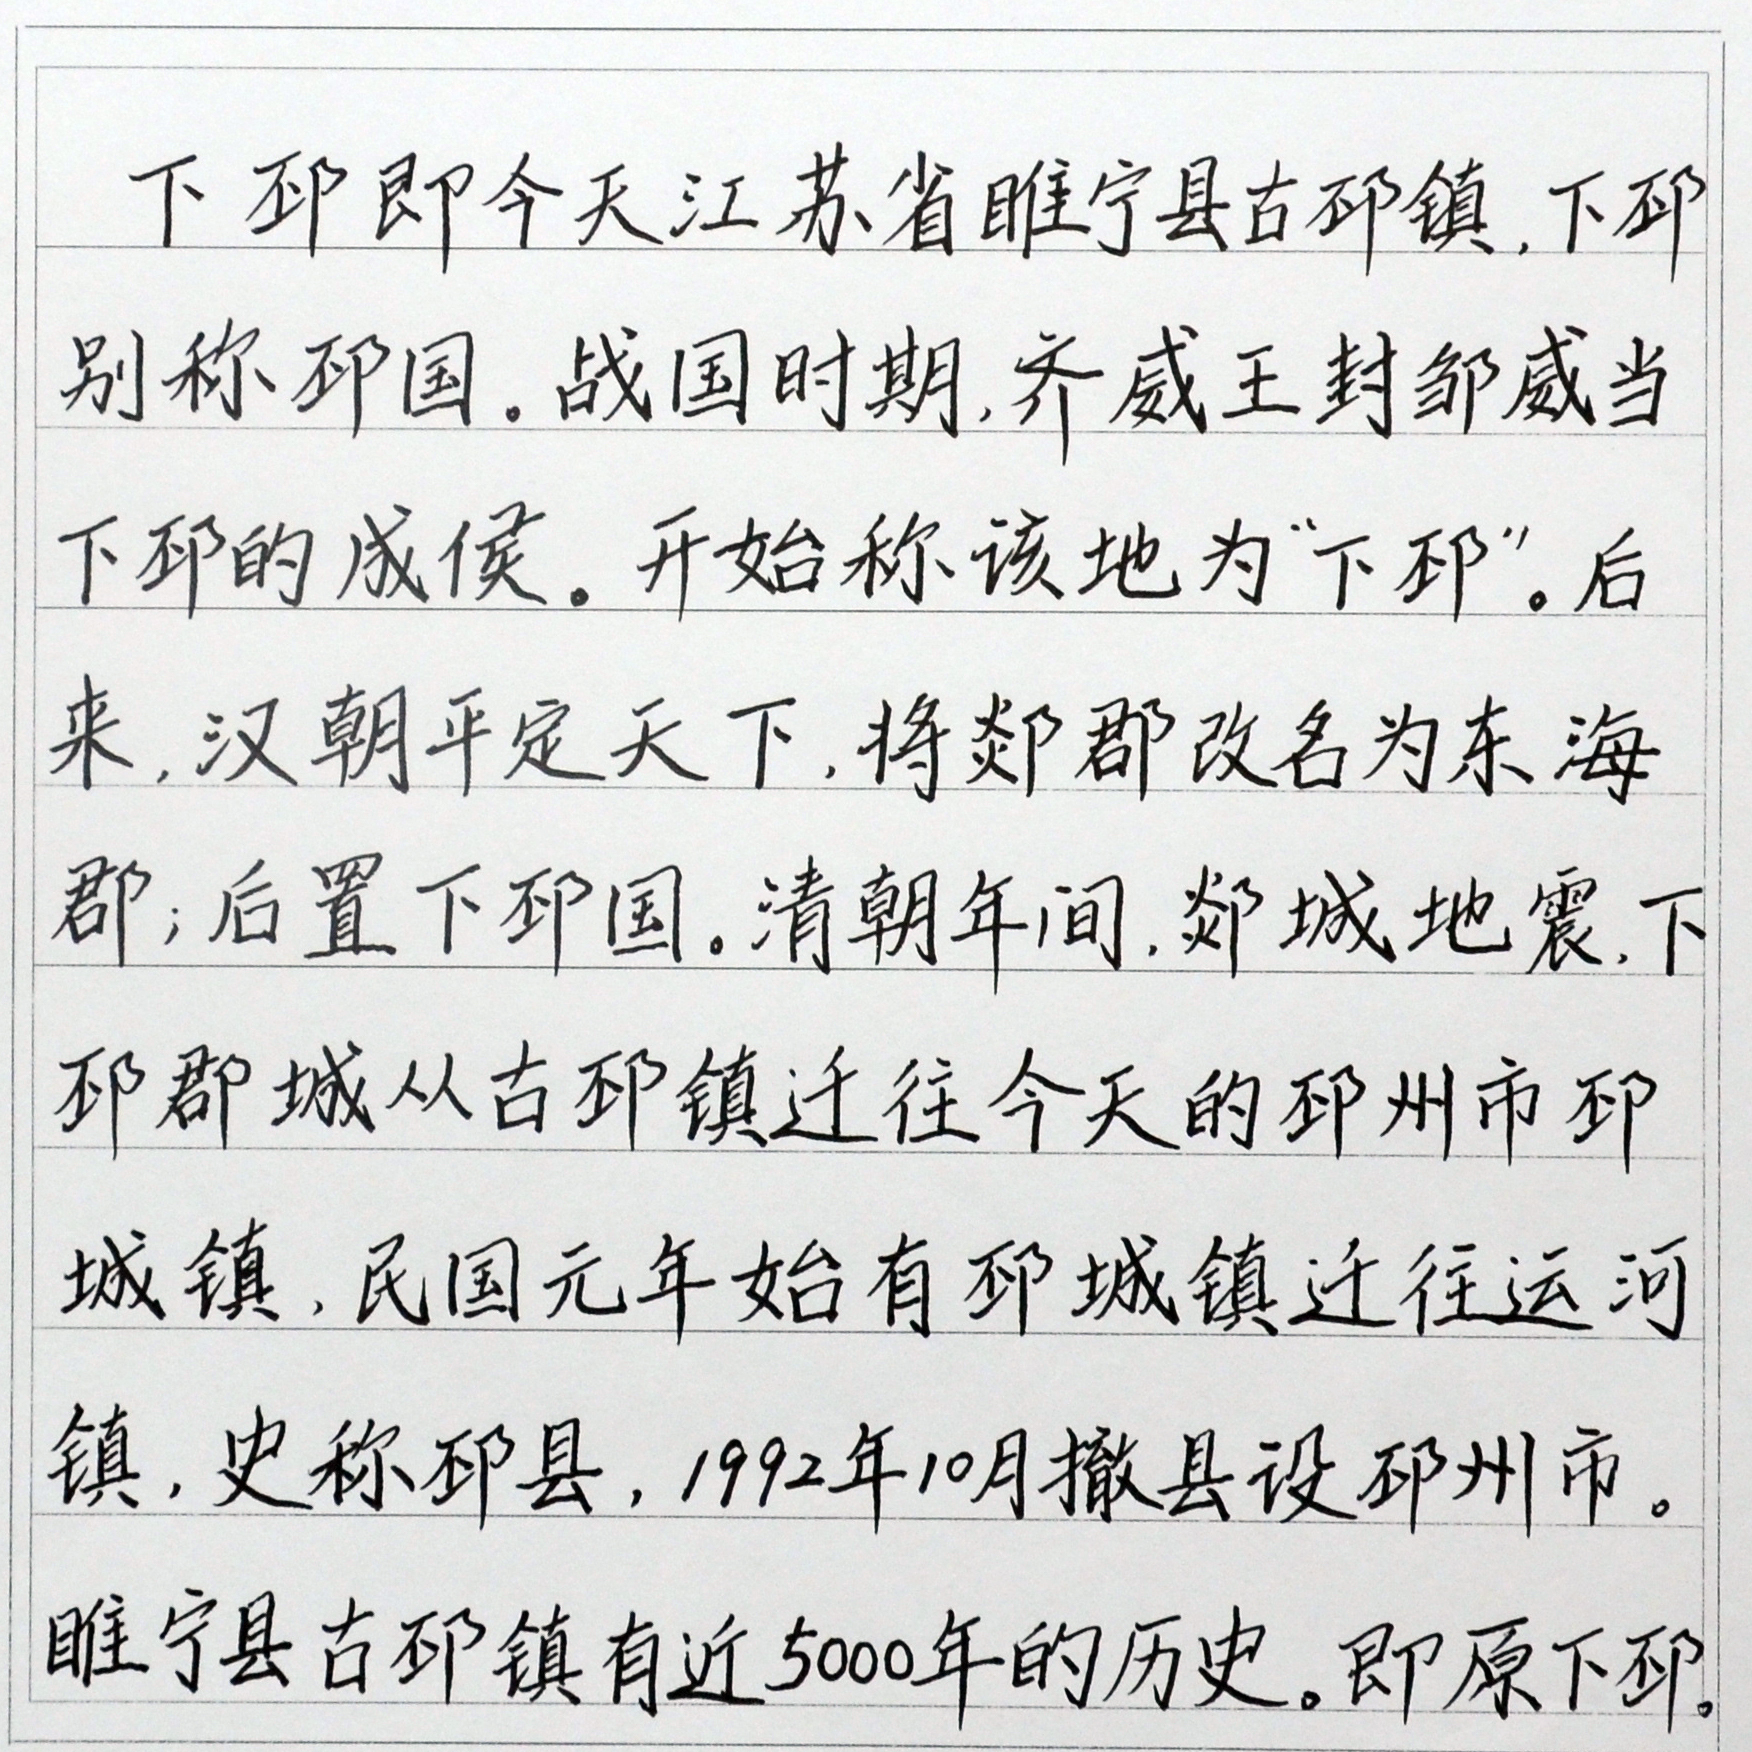 下邳即今天江苏省睢宁县古邳镇,下邳
别称邳国。战国时期,齐威王封邹威当
下邳的成侯。开始称该地为“下邳”。后
来,汉朝平定天下,将郯郡改名为东海
郡;后置下邳国。清朝年间,郯城地震,下
邳郡城从古邳镇迁往今天的邳州市邳
城镇,民国元年始有邳城镇迁往运河
镇,史称邳县,1992年10月撤县设邳州市。
睢宁县古邳镇有近5000年的历史。即原下邳。